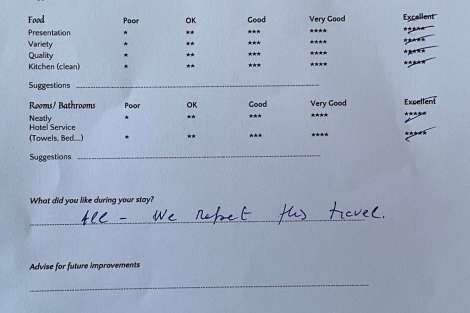 Food Poor OK Good Very Good Excellent
Presentation * ** *** **** *****
Variety * ** *** **** *****
Quality * ** *** **** *****
Kitchen (clean) * ** *** **** *****
Suggestions
Rooms/ Bathrooms Poor OK Good Very Good Excellent
Neatly * ** *** **** *****
Hotel Service
(Towels, Bed....) * ** *** **** *****
Suggestions
What did you like during your stay?
All - We this travel.
Advise for future improvements